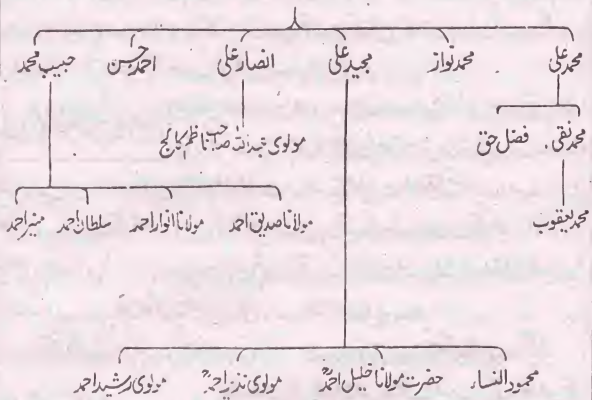 محمد علی محمد نواز مجید علی انصار علی احمد حسن حبیب محمد
محمد نقی۔ فضل حق مولوی عبداللہ صاحب ناظم کالج
محمد یعقوب مولانا صدیق احمد مولانا انوار احمد سلطان احمد منیر احمد
محمود النساء حضرت مولانا خلیل احمدؒ مولوی نذیر احمدؒ مولوی رشید احمد